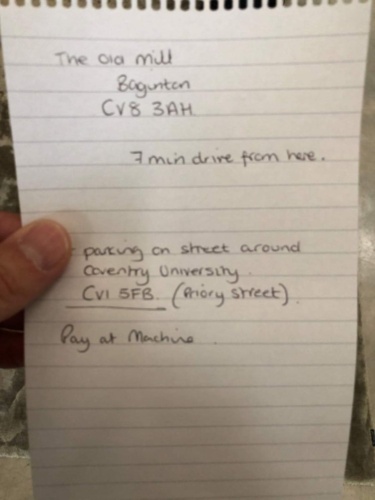 The Old Mill
Baginton
CV8 3AH
7 min drive from here.
- parking on street around
Coventry University.
CV1 5FB. (Priory Street).
Pay at Machine.